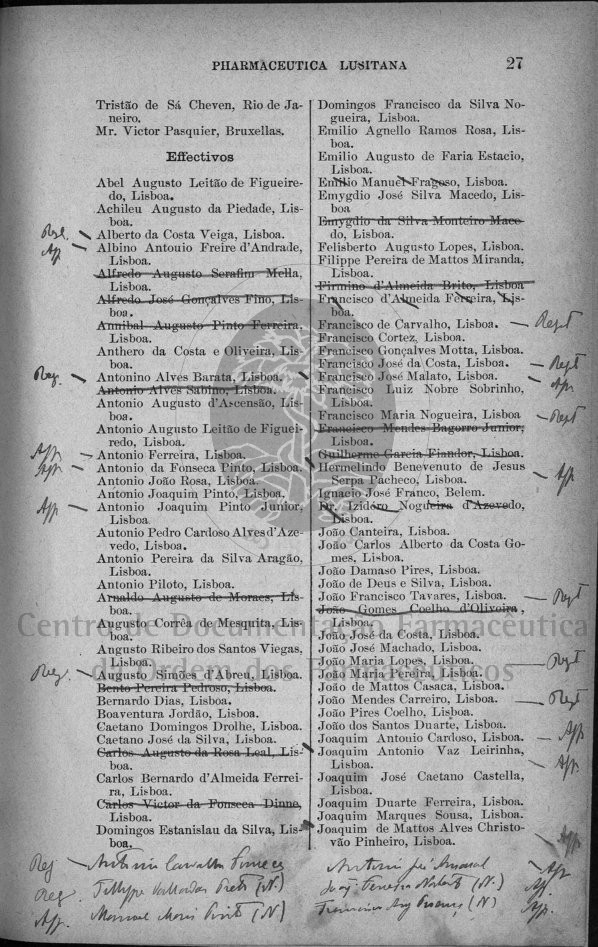 PHARMACEUTICA LUSITANA 27
Tristão de Sá Cheven, Rio de Ja-
neiro.
Mr. Victor Pasquier, Bruxellas.
Effectivos
Abel Augusto Leitão de Figueire-
do, Lisboa.
Achileu Augusto da Piedade, Lis-
boa.
Alberto da Costa Veiga, Lisboa.
Ap. Albino Antouio Freire d'Andrade,
Lisboa.
Alfredo Augusto Serafim Mella,
Lisboa.
Alfredo José Gonçalves Fino, Lis-
boa.
Annibal Augusto Pinto Ferreira,
Lisboa.
Anthero da Costa e Oliveira, Lis-
boa.
Reg. Antonino Alves Barata, Lisboa.
Antonio Alves Sabino, Lisboa.
Antonio Augusto d'Ascensão, Lis-
boa.
Antonio Augusto Leitão de Figuei-
redo, Lisboa.
App. Antonio Ferreira, Lisboa.
App. Antonio da Fonseca Pinto, Lisboa.
Antonio João Rosa, Lisboa.
Antonio Joaquim Pinto, Lisboa.
App Antonio Joaquim Pinto Junior,
Lisboa
Autonio Pedro Cardoso Alves d'Aze-
vedo, Lisboa.
Antonio Pereira da Silva Aragão,
Lisboa.
Antonio Piloto, Lisboa.
Arnaldo Augusto de Moraes, Lis-
boa.
Augusto Corrêa de Mesquita, Lis-
boa.
Augusto Ribeiro dos Santos Viegas,
Lisboa.
Reg. Augusto Simões d'Abreu, Lisboa.
Bento Pereira Pedroso, Lisboa.
Bernardo Dias, Lisboa.
Boaventura Jordão, Lisboa.
Caetano Domingos Drolhe, Lisboa.
Caetano José da Silva, Lisboa.
Carlos Augusto da Rosa Leal, Lis-
boa.
Carlos Bernardo d'Almeida Ferrei-
ra, Lisboa.
Carlos Victor da Fonseca Dinne,
Lisboa.
Domingos Estanislau da Silva, Lis-
boa.
Domingos Francisco da Silva No-
gueira, Lisboa.
Emilio Agnello Ramos Rosa, Lis-
boa.
Emilio Augusto de Faria Estacio,
Lisboa.
Emilio Manuel Fragoso, Lisboa.
Emygdio José Silva Macedo, Lis-
boa
Emygdio da Silva Monteiro Mace-
do, Lisboa.
Felisberto Augusto Lopes, Lisboa.
Filippe Pereira de Mattos Miranda,
Lisboa.
Firmino d'Almeida Brito, Lisboa
Francisco d'Almeida Ferreira, Lis-
boa.
Francisco de Carvalho, Lisboa. Regt
Francisco Cortez, Lisboa.
Francisco Gonçalves Motta, Lisboa.
Francisco José da Costa, Lisboa. Regt
Francisco José Malato, Lisboa. Ap.
Francisco Luiz Nobre Sobrinho,
Lisboa.
Francisco Maria Nogueira, Lisboa Regt
Francisco Mendes Bagorro Junior,
Lisboa.
Guilherme Garcia Fiandor, Lisboa.
Hermelindo Benevenuto de Jesus
Serpa Pacheco, Lisboa. App
Ignacio José Franco, Belem.
Dr. Izidoro Nogueira d'Azevedo,
Lisboa.
João Canteira, Lisboa.
João Carlos Alberto da Costa Go-
mes, Lisboa.
João Damaso Pires, Lisboa.
João de Deus e Silva, Lisboa.
João Francisco Tavares, Lisboa. Regt
João Gomes Coelho d'Oliveira,
Lisboa.
João José da Costa, Lisboa.
João José Machado, Lisboa.
João Maria Lopes, Lisboa. Regt
João Maria Pereira, Lisboa.
João de Mattos Casaca, Lisboa.
João Mendes Carreiro, Lisboa. Regt
João Pires Coelho, Lisboa.
João dos Santos Duarte, Lisboa.
Joaquim Antouio Cardoso, Lisboa. App
Joaquim Antonio Vaz Leirinha,
Lisboa. App.
Joaquim José Caetano Castella,
Lisboa.
Joaquim Duarte Ferreira, Lisboa.
Joaquim Marques Sousa, Lisboa.
Joaquim de Mattos Alves Christo-
vão Pinheiro, Lisboa. App
Reg Antonio Carvalho Fonseca
Reg (N.)
App. Manuel (N)
Antonio José Ap
(N.) Ap.
Francisco (N) App.
Centro de Documentação Farmacêutica
da Ordem dos Farmacêuticos